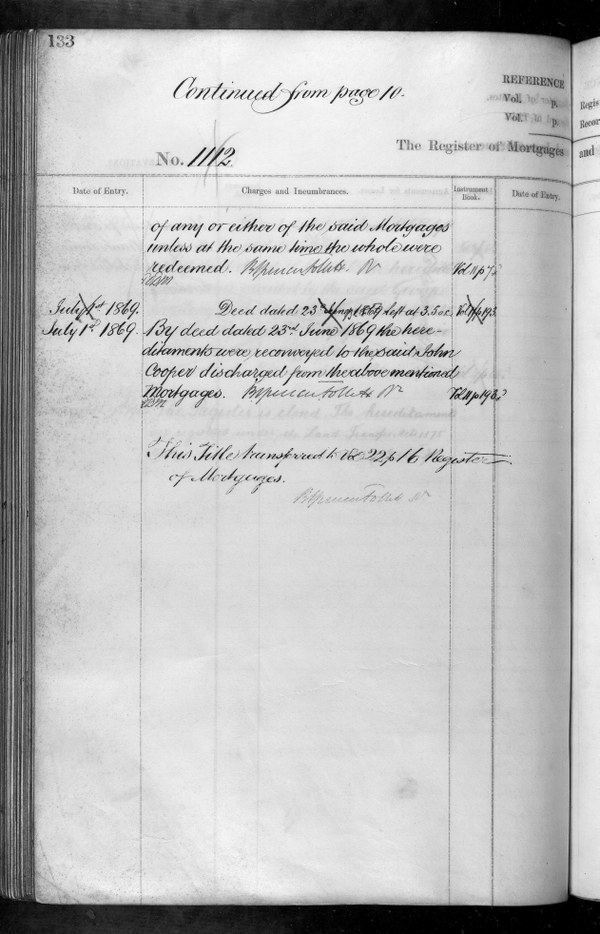 133
Continued from page 10.
REFERENCE
Vol. p.
Vol. p.
No. 1112
The Register of Mortgages
Date of Entry.
Charges and Incumbrances.
Instrument Book.
Date of Entry.
of any or either of the said Mortgages
unless at the same time the whole were
redeemed.
Vol 11 p 7
July 1st 1869.
Deed dated 23rd June 1869 left at 3.5 o.c.
Vol 11 p 193
July 1st 1869.
By deed dated 23rd June 1869 the here-
ditaments were reconveyed to the said John
Cooper discharged from the above mentioned
Mortgages.
Vol 11 p 193
This Title transferred to Vol 22 p 16 Register
of Mortgages.
Regis
Recor
and